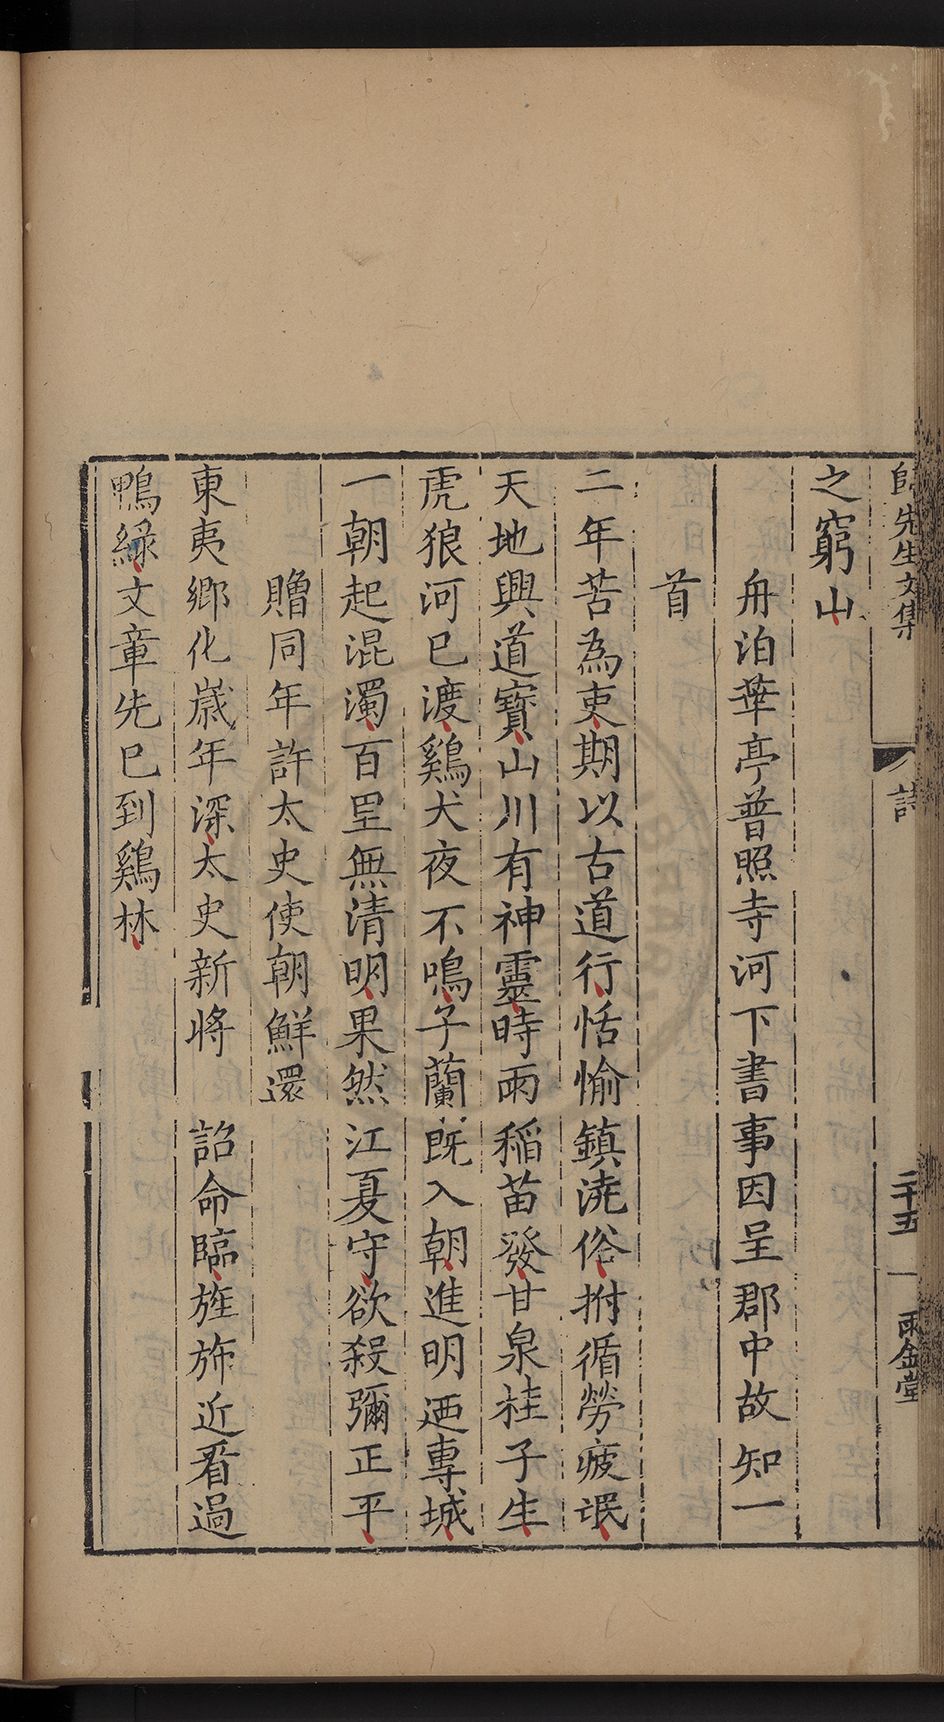 師先生文集 詩 二十五 雨金堂
之窮山
舟泊華亭普照寺河下書事因呈郡中故知一
首
二年苦為吏期以古道行恬愉鎮澆俗拊循勞疲氓
天地興道寶山川有神靈時雨稻苗發甘泉桂子生
虎狼河已渡鷄犬夜不鳴子蘭既入朝進明迺專城
一朝起混濁百里無清明果然江夏守欲殺彌正平
贈同年許太史使朝鮮還
東夷鄉化歲年深太史新將 詔命臨旌斾近看過
鴨綠文章先已到鷄林